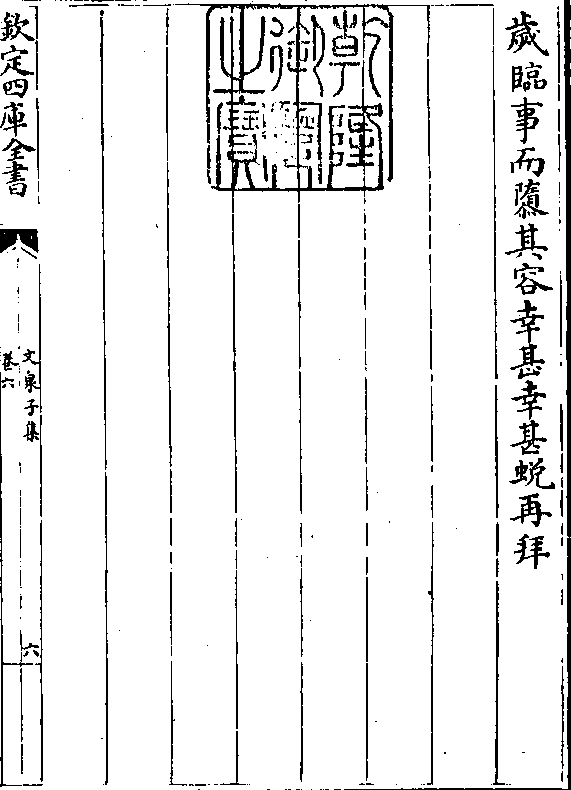 歲臨事而隳其容幸甚幸甚蛻再拜
乾隆
御覽
之寶
欽定四庫全書
文泉子集
卷六
六